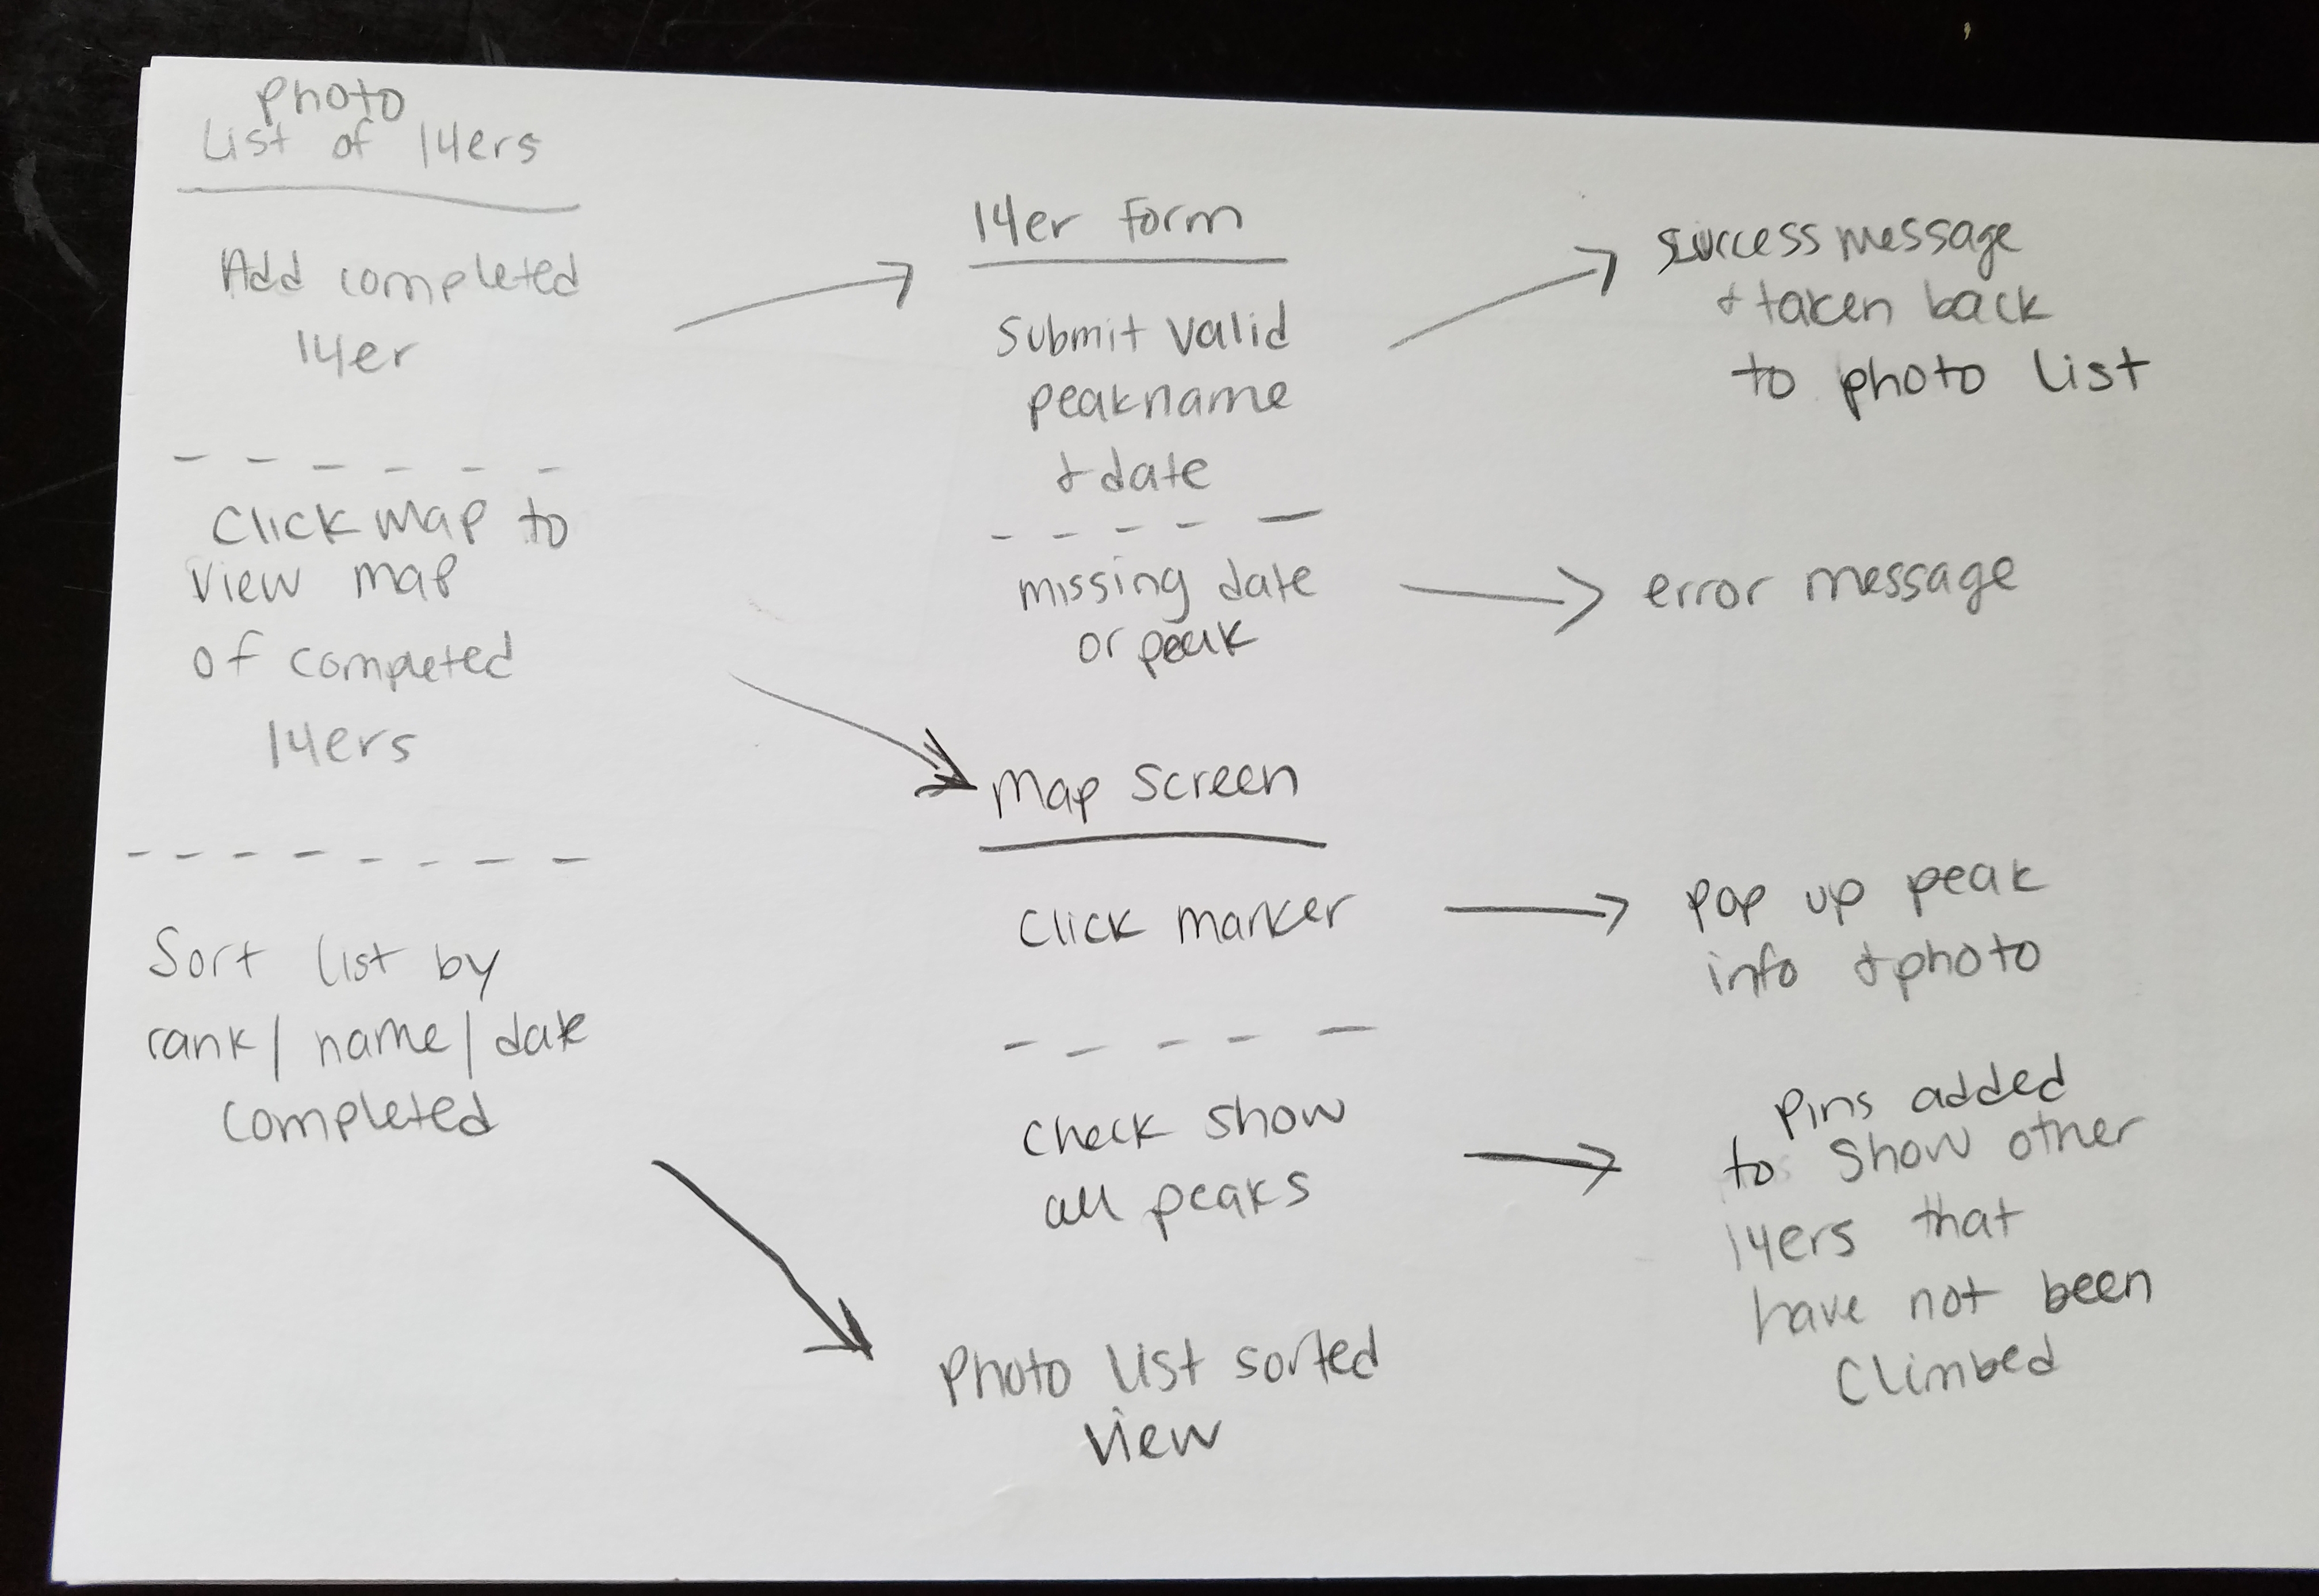 Photo
List of 14ers
Add completed
14er
Click Map to
View map
of competed
14ers
Sort list by
rank / name / date
completed
14er Form
Submit valid
peakname
& date
missing date
or peak
Map Screen
Click marker
Check show
all peaks
Photo List sorted
view
success message
& taken back
to photo list
error message
Pop up peak
info & photo
Pins added
to show other
14ers that
have not been
climbed